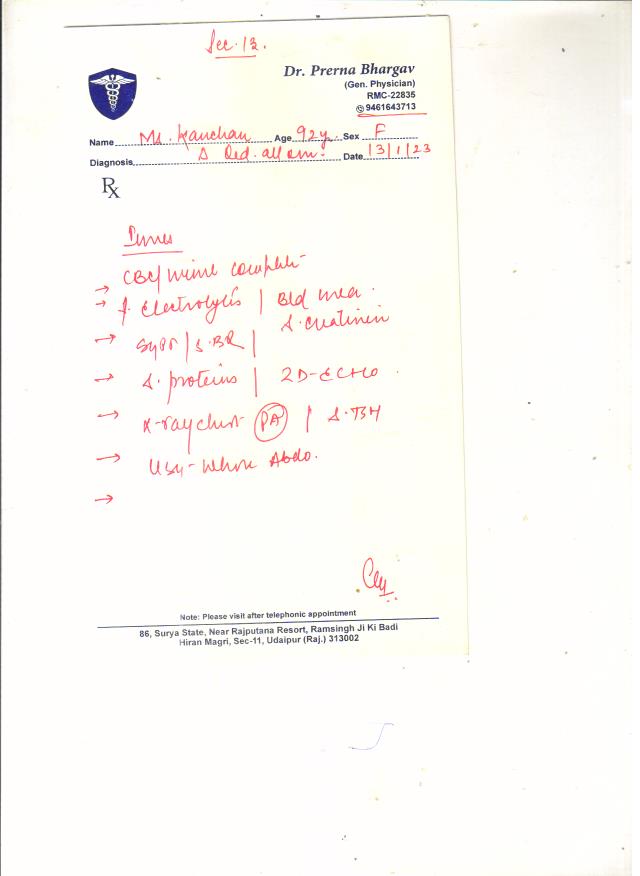 Sec. 13.
Dr. Prerna Bhargav
(Gen. Physician)
RMC-22835
9461643713
Name Ms. Kanchan Age 92y. Sex F
Diagnosis Ped. Date 13/1/23
Rx
→ CBC/urine complete
→ S. Electrolytes | Bld urea.
S. Creatinin
→ SGPT | S.BR |
→ S. proteins | 2D-ECHO.
→ X-ray chest PA | S.TSH
→ USG-Whole Abdo.
→
Note: Please visit after telephonic appointment
86, Surya State, Near Rajputana Resort, Ramsingh Ji Ki Badi
Hiran Magri, Sec-11, Udaipur (Raj.) 313002